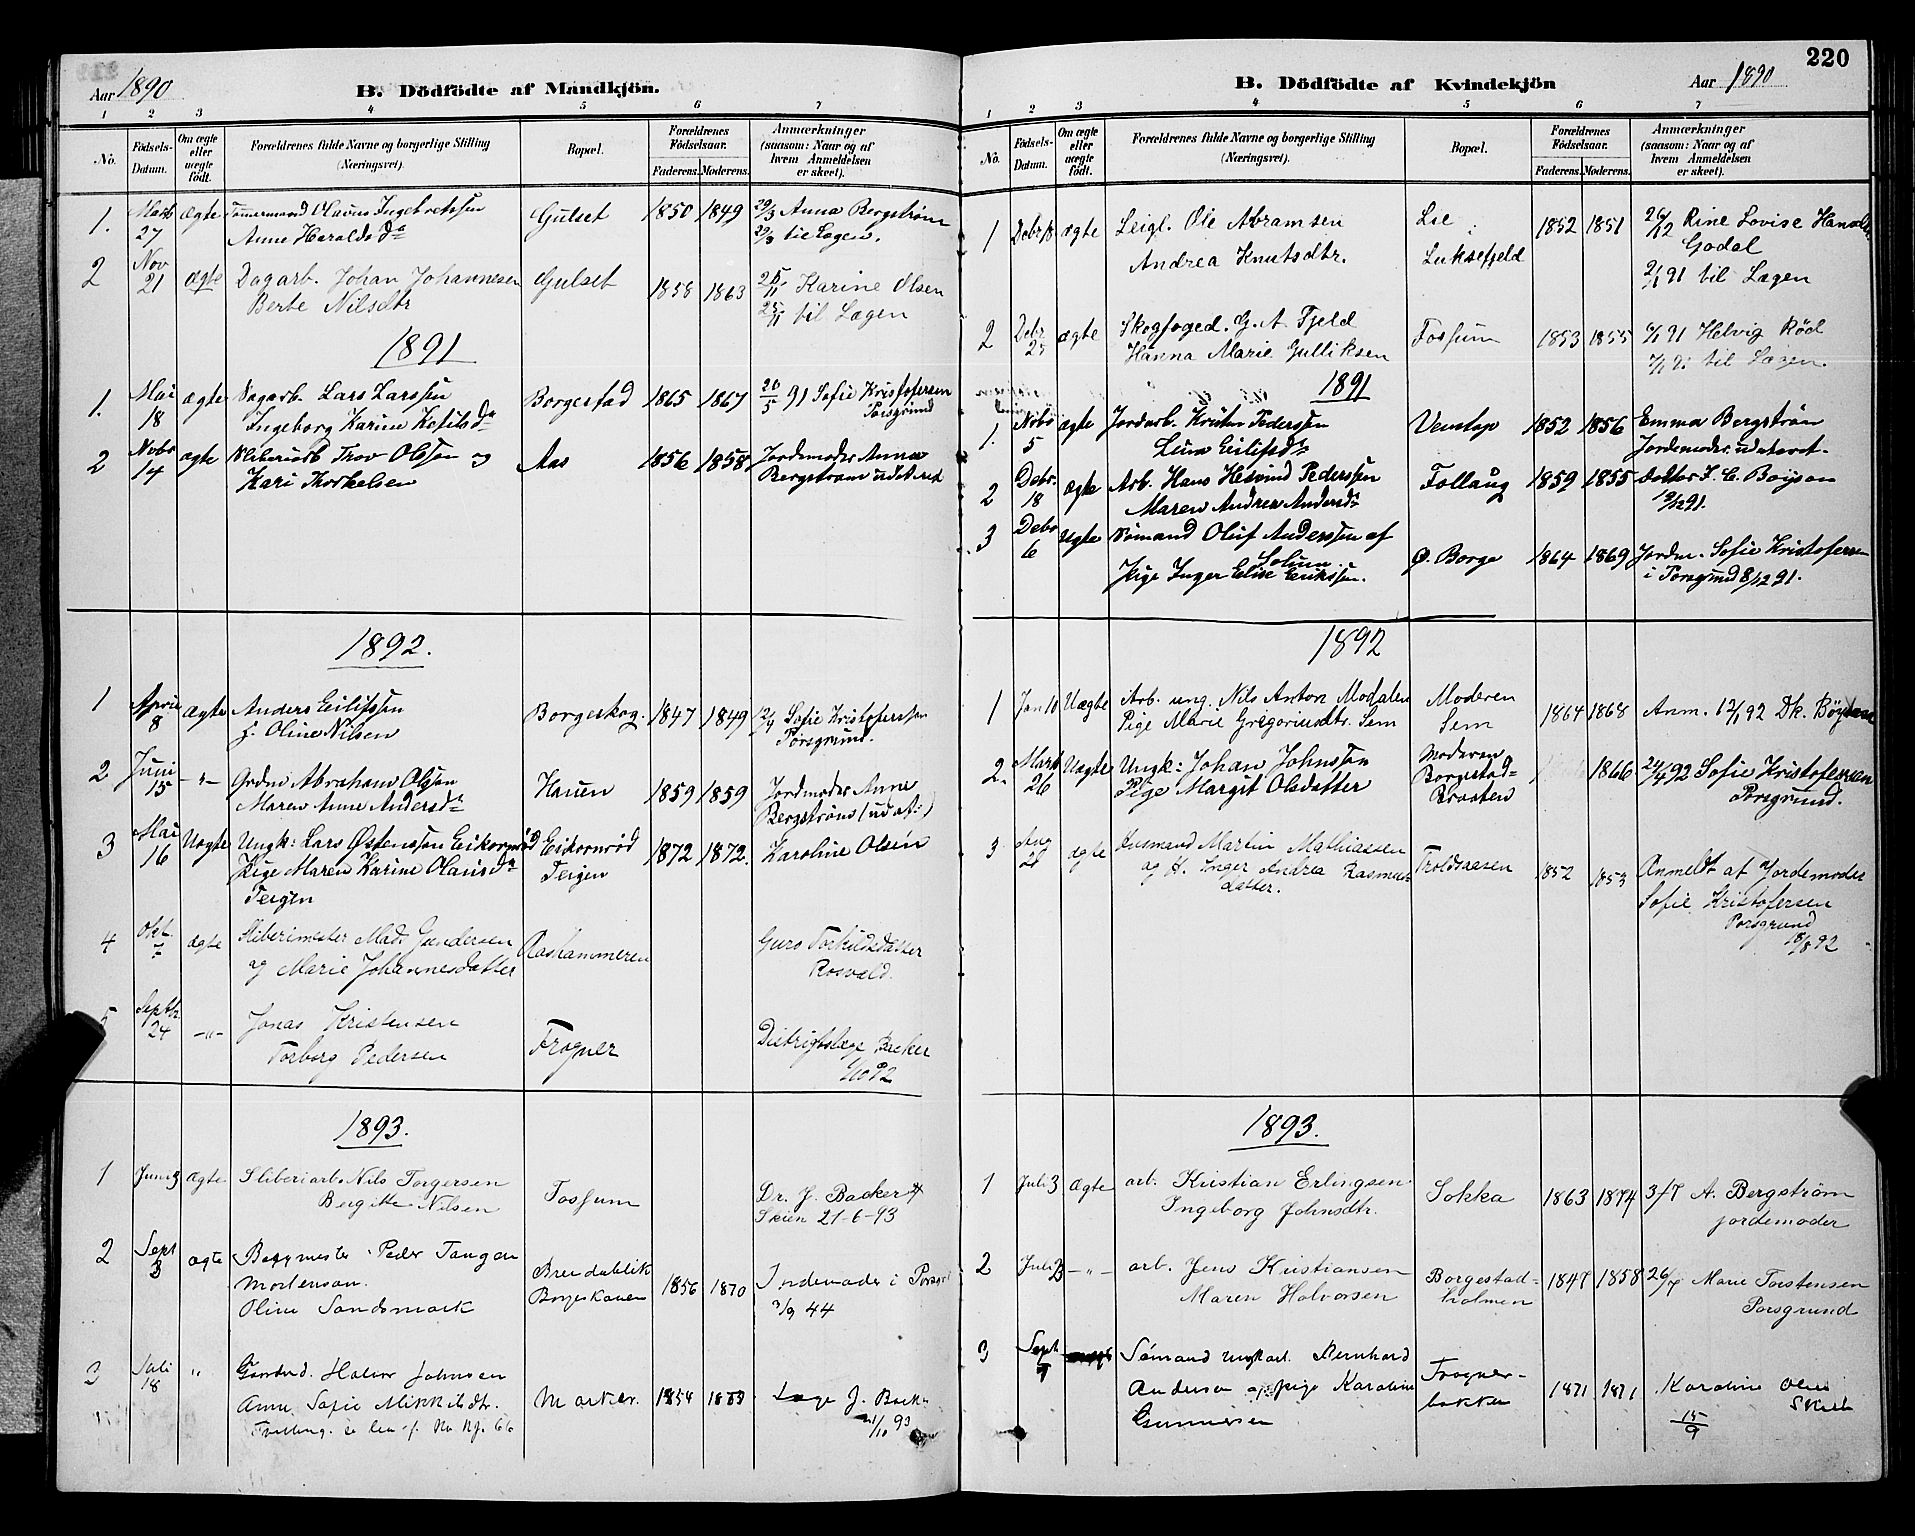 220
Aar 1890
B. Dödfödte af Mandkjön.
1 2 3 4 5 6 7
No.
Födsels-Datum.
Om ægte eller uægte födt.
Forældrenes fulde Navne og borgerlige Stilling
(Næringsvei).
Bopæl.
Forældrenes Födselsaar.
Faderens. Moderens.
Anmærkninger
(saasom: Naar og af
hvem Anmeldelsen
er skeet).
1. 27 ægte Tømermand Olavus Ingebretsen Gulset 1850 1849 29/3 Anna Bergstrøm
Anne Haralds da 29/3 til Lægen.
2 Nov 21 ægte Dagarb. Johan Johannesen Gulset 1858 1863 25/11 Karine Olsen
Berte Nilsdtr 25/11 til Lægen
1891
1. Mai 18 ægte Dagarb. Lars Larssen Borgestad 1865 1867 20/5 91 Sofie Kristofersen
Ingeborg Karine Porsgrund
2 Novbr 14 ægte Trov Olsen og Aas 1856 1858 Jordemoder Anna
Kari Thorkelsen Bergstrøm udstæd
1892.
1 April 8 ægte Anders Eilifssen Borgeskog. 1847 1849 12/4 Sofie Kristoferssen
f. Oline Nilsen Porsgrund.
2 Juni 15 -"- Grdm Abraham Olsen Hauen 1859 1859 Jordmoder Anne
Maren Anne Andersda Bergstrøm (udat:)
3 Mai 16 Uægte Ungk: Lars Østenssøn Eikornrød Eikornrød 1872 1872. Karoline Olsen
Pige Maren Karine Olausda Teigen
Teigen
4 Okt. ægte Sliberimester Mads Gundersen Aashammeren Guro Torkildsdatter
og Marie Johannesdatter Rosvald.
5 Septbr. 24 -"- Jonas Kristensen Frogner Distriktslæge Backer
Torborg Pedersen 1/10 92
1893.
1 Juni 3 ægte Sliberiarb. Nils Torgersen Fossum Dr. J. Backer
Bergitte Nilsen Skien 21-6-93
2 Sept 3 ægte Peder Tangen 1856 1870 Jordemoder i Porsgr
Mortensen. 3/9 44
Oline Sandsmark
3 Juli 18 " Gaardbr. Halvor Johnsen 1854 Læge J. Backer
Anne Sofie Mikkelsdtr. 1/10 93
B. Dödfödte af Kvindekjön
Aar 1890
1 2 3 4 5 6 7
No.
Födsels-Datum.
Om ægte eller uægte födt.
Forældrenes fulde Navne og borgerlige Stilling
(Næringsvei).
Bopæl.
Forældrenes Födselsaar.
Faderens. Moderens.
Anmærkninger
(saasom: Naar og af
hvem Anmeldelsen
er skeet).
1 Debr 18 ægte Leigl. Ole Abramsen Lie 1852 1851 26/12 Rine Lovise
Andrea Knutsdtr. Luksefjeld Godal
2/1 91 til Lægen
2 Debr 25 ægte Skogfoged. G. A. Fjeld Fossum 1853 1855 Helvig Rød
Hanna Marie Gulliksen til Lægen.
1891
1. Novbr 5 ægte Jordarb. Kristen Pederssen Venstøp 1852 1856 Emma Bergstrøm
Eilifsda Jordemoder udateret.
2 Debr. 18 ægte Arb. Hans Pederssen Follaug 1859 1855 doktor J. C. Boyson
Maren Andrea Andersda 19/12 91.
3 Debr 6 Uægte Sømand Oluf Anderssen af Ø. Borge 1864 1869 Jordm. Sofie Kristofersen
Solum i Porsgrund 8/12 91.
Pige Inger Elise Erikssen.
1892
1 Jan 10 Uægte Arb. ung. Nils Anton Modalen Moderen 1864 1868 Anm. 12/1 92 Dk. Böysen
Pige Marie Gregoriusdtr. Sem Sem
2. Marts 26 Uægte Ungk: Johan Johnssøn Moderen 1866 24/4 92 Sofie Kristofersen
Pige Margit Olsdatter Borgestad- Porsgrund.
Braaten
3 Aug 26 ægte Husmand Martin Mathiassen Troldsaasen 1852 1853 Anmeldt af Jordemoder
og H. Inger Andrea Rasmus- Sofie Kristofersen
datter. Porsgrund
18/8 92
1893.
1 Juli 3 ægte arb. Kristian Erlingsen Sokka 1863 1874 3/7 A. Bergström
Ingeborg Johnsdtr. jordemoder
2 Juli 23 -"- arb. Jens Kristiansen Borgestad- 1847 1858 26/7 Marie Torstensen
Maren Halvorsen holmen Porsgrund
3 Sept 7 Sömand ungkarl. Bernhard Frogner- 1871 1871 Karoline
Andersen og pige Karoline bakken 15/9
Gunnersen